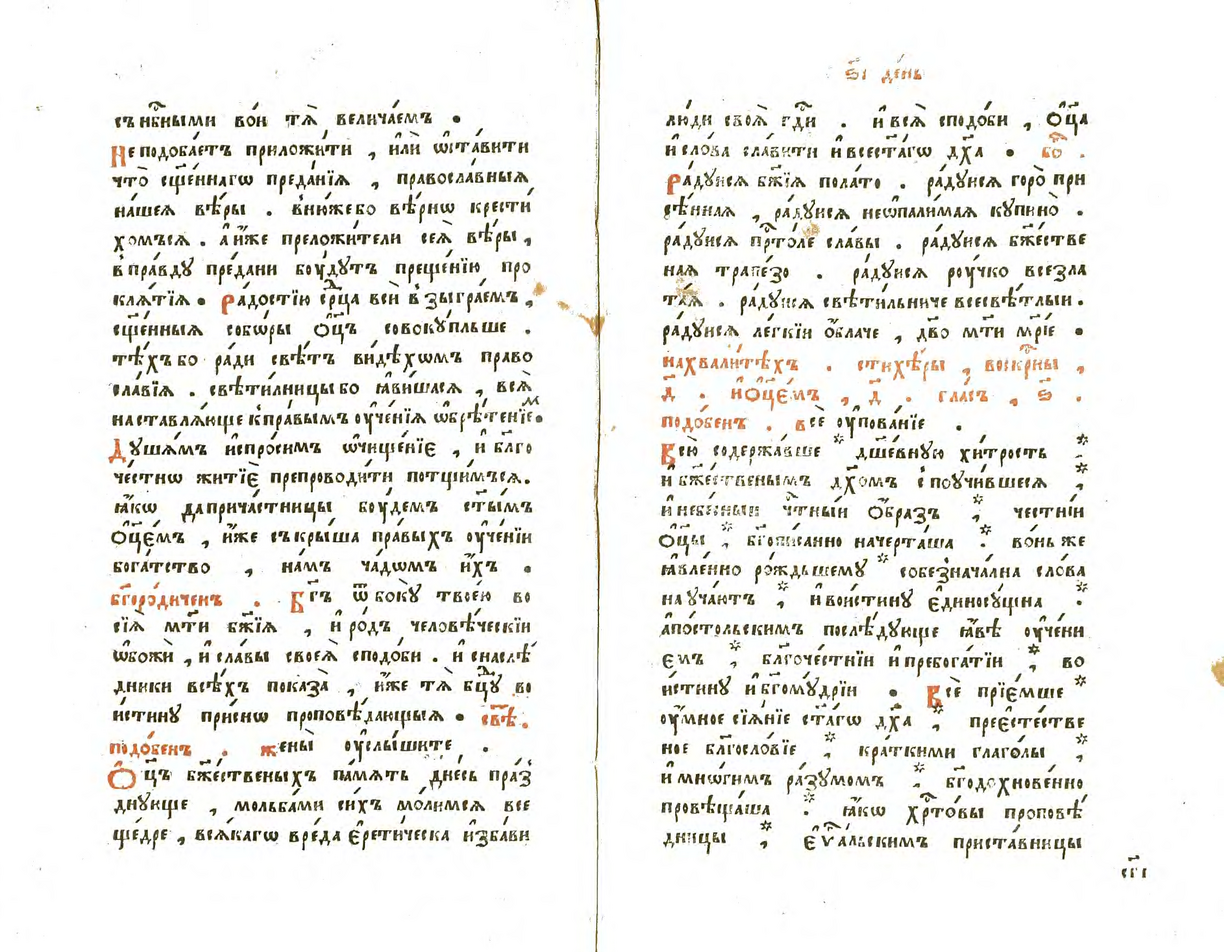 съ нбⷭ҇ными во́и тѧ̀ велича́емъ .
Не подоба́етъ приложи́ти , и҆лѝ ѡ҆ста́вити
что̀ сщ҃е́ннагѡ преда́нїѧ , правосла́вныѧ
на́шеѧ вѣ́ры . в̾ню́же бо вѣ́рнѡ крести́
хомъсѧ . А и҆̀же преложи́тели сеѧ̀ вѣ́ры ,
в̾пра́вду пре́дани бꙋ́дутъ преще́нїю про
клѧ́тїѧ . Ра́достїю срⷣца всѝ в̾зыгра́емъ ,
сщ҃е́нныѧ собѡ́ры Ѻ҆ц҃ъ совокꙋ́пльше .
тѣ́хъ бо ра́ди свѣ́тъ ви́дѣхѡмъ право
сла́вїѧ . свѣти́лницы бо ꙗ҆ви́шасѧ , всѧ̀
наставлѧ́юще к̾пра́вымъ ᲂу҆че́нїѧ ѡ҆брѣ́тенїемⷨ.
Дꙋша́мъ и҆спро́симъ ѡ҆чище́нїе , и҆ бл҃го
че́стнѡ житїѐ препроводи́ти потщи́мъсѧ.
ꙗ҆́кѡ да прича́стницы бꙋ́демъ ст҃ы́мъ
Ѻ҆ц҃є́мъ , и҆̀же съкры́ша пра́выхъ ᲂу҆че́нїи
бога́тство , на́мъ ча́дѡмъ и҆́хъ .
бг҃оро́диченъ . Бг҃ъ ѿ бо́кꙋ твоею̀ во
сїѧ̀ мт҃и бж҃їѧ , и҆ ро́дъ человѣ́ческїи
ѡ҆божѝ , и҆ сла́вы своеѧ̀ сподо́би . и҆ снаслѣ́
дники всѣ́хъ показа̀ , и҆̀же тѧ̀ бцⷣꙋ во
и́стинꙋ при́снѡ проповѣ́дающыѧ . свѣ́.
подо́бенъ . жены̀ ᲂу҆слы́шите .
Ѻ҆ц҃ъ бж҃е́ственыхъ па́мѧть дне́сь пра́з
дꙋюще , мольба́ми си́хъ мо́лимсѧ все
ще́дре , всѧ́кагѡ вре́да є҆рети́ческа и҆зба́ви
ѕ҃і де́нь
лю́ди своѧ̀ гдⷭ҇и . и҆ всѧ̀ сподо́би , Ѻ҆ц҃а
и҆ сло́ва сла́вити и҆ всест҃а́гѡ дх҃а . бо҃ .
Ра́дꙋисѧ бж҃їѧ пола́то . ра́дꙋисѧ горо̀ при
сѣ́нная , ра́дꙋисѧ неѡпали́мая кꙋпино̀ .
ра́дꙋисѧ прⷭ҇то́ле сла́вы . ра́дꙋисѧ бж҃е́стве
ная трапе́зо . ра́дꙋисѧ рꙋ́чко всезла
та́ѧ . ра́дꙋисѧ свѣти́льниче всесвѣ́тлыи .
ра́дꙋисѧ ле́гкїи ѻ҆́блаче , дв҃о мт҃и мр҃і́е .
на хвали́тѣхъ . стихѣ́ры , воскрⷭ҇ны ,
д҃ . и҆ Ѻ҆ц҃є́мъ , д҃ . гла́съ , ѕ҃ .
подо́бенъ . всѐ ᲂу҆пова́нїе .
Всю̀ содержа́вше * дш҃е́внꙋю хи́трость *,
и҆ бж҃е́ственымъ дх҃омъ с̾поꙋчи́вшеся ,
и҆ небе́сныи чтⷭ҇ны́и ѻ҆́бразъ *, че́стнїи
Ѻ҆ц҃ы * , бг҃опи́санно начерта́ша *. во́нь же
ꙗ҆вле́нно ро́ждьшему * собезнача́лна сло́ва
наꙋча́ютъ * , и҆ вои́стинꙋ є҆диносꙋ́щна .
а҆по́стольскимъ послѣ́дꙋюще ꙗ҆́вѣ ᲂу҆че́ни
емъ *, благоче́стнїи и҆ пребога́тїи *, во
и́стинꙋ и҆ бг҃омꙋ́дрїи . Всѐ прїе́мше *
ᲂу҆́мное сїѧ́нїе ст҃а́гѡ дх҃а *, пре́єсте́стве
ное бл҃госло́вїе *, кра́ткими глаго́лы *,
и҆ мнѡ́гимъ ра́зꙋмомъ *, бг҃одꙋхнове́нно
провѣща́ша *. ꙗ҆́кѡ хрⷭ҇то́вы проповѣ́
дницы * , є҆ѵⷢ҇а́льскимъ приста́вницы
сг҃і